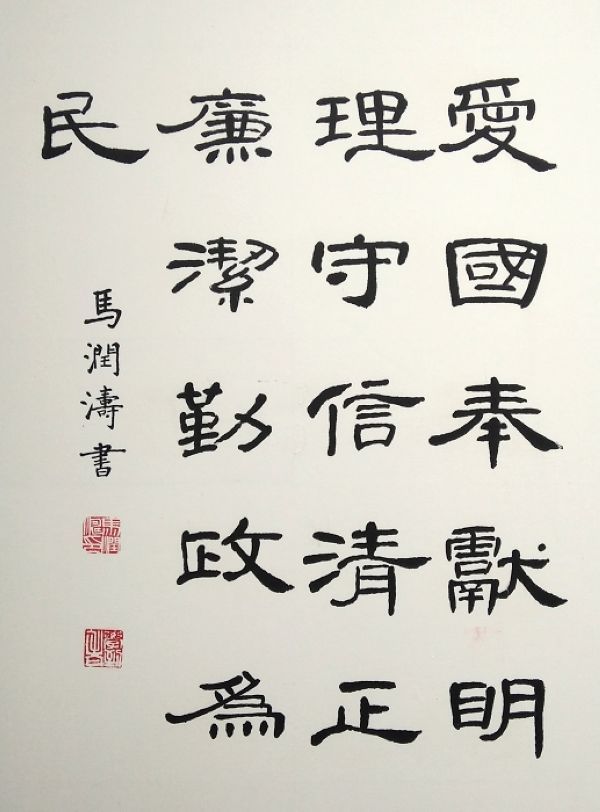 愛國奉獻明
理守信清正
廉潔勤政為
民
馬潤濤書